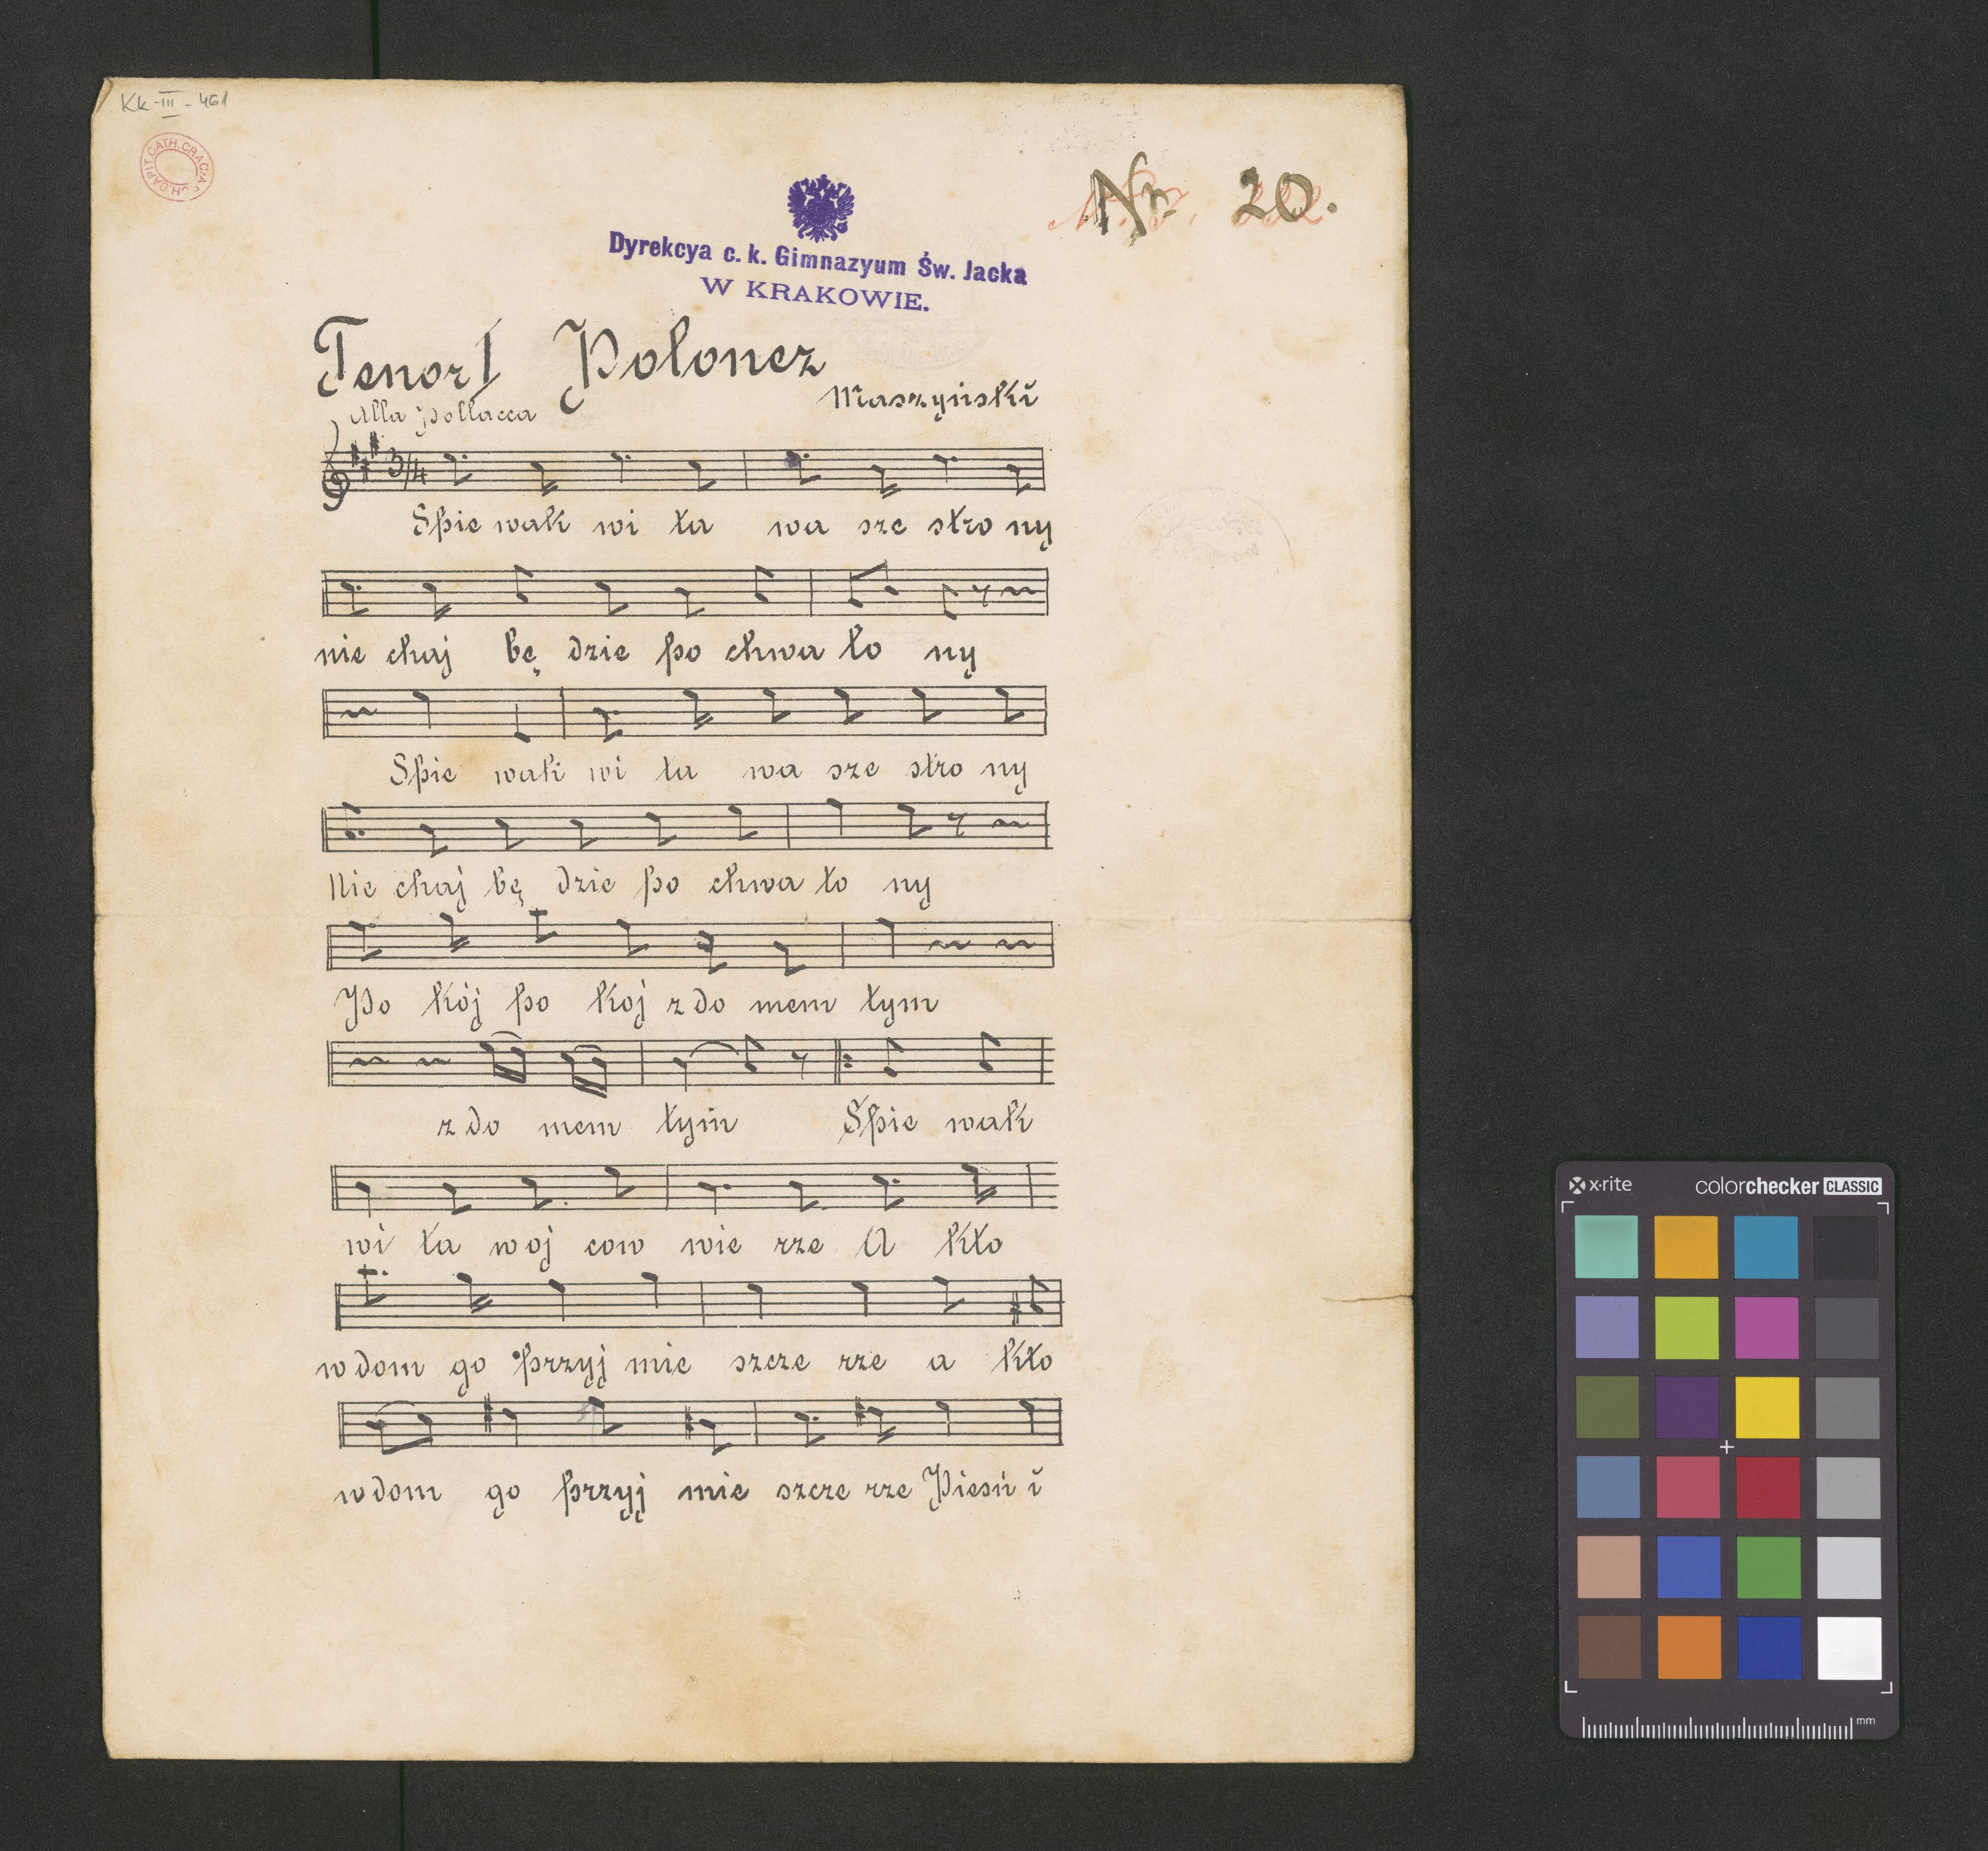 Kk-III-461
Nr 20.
Dyrekcya c. k. Gimnazyum Św. Jacka
W KRAKOWIE.
Tenor I Polonez
Maszyński
Alla Pollacca
3/4
Spie wak wi ta wa sze stro ny
nie chaj bę dzie po chwa lo ny
Spie wak wi ta wa sze stro ny
Nie chaj bę dzie po chwa lo ny
Po kój po koj z do mem tym
z do mem tym Spie wak
wi ta woj cow wie rze A kto
w dom go przyj mie szcze rze a kto
w dom go przyj mie szcze rze Pieśń i
x·rite colorchecker CLASSIC
mm